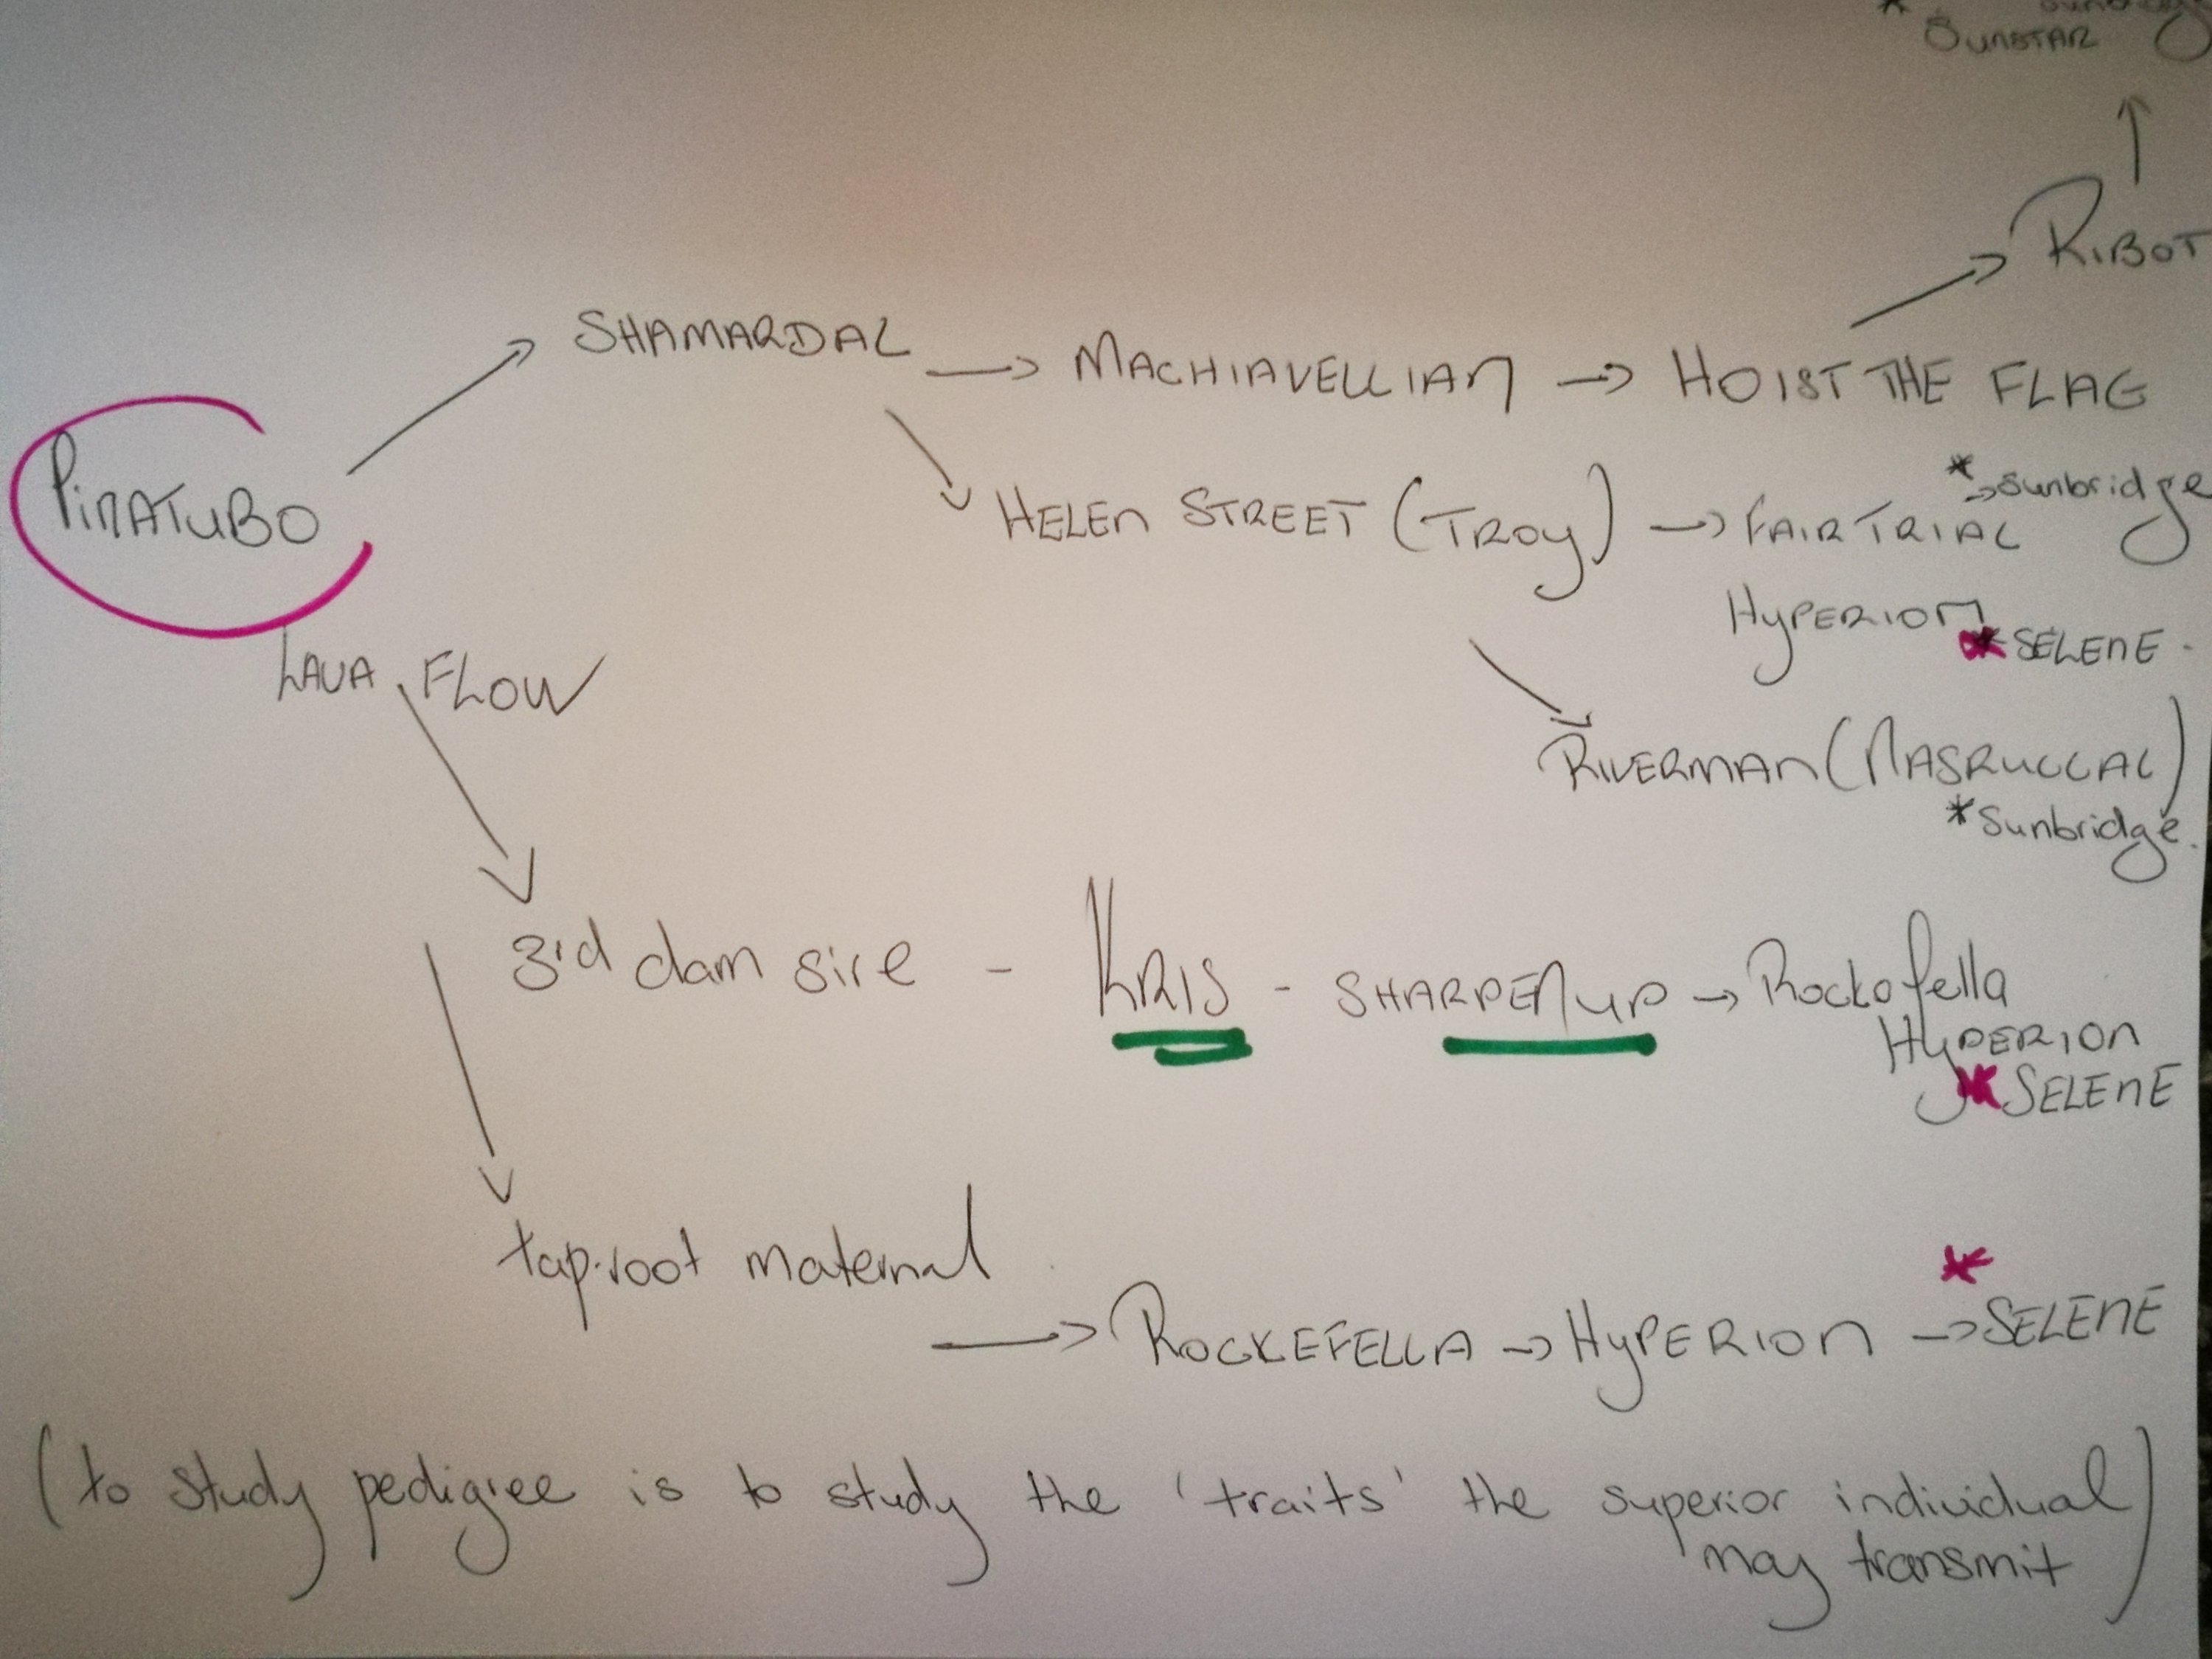 * Sunbridge
SUNSTAR
RIBOT
SHAMARDAL → MACHIAVELLIAN → HOIST THE FLAG
PINATUBO
HELEN STREET (TROY) → FAIR TRIAL
* → Sunbridge
HYPERION
* SELENE
LAVA FLOW
RIVERMAN (NASRULLAL)
* Sunbridge
3rd dam sire - KRIS - SHARPEN UP → Rockofella
HYPERION
* SELENE
tap-root maternal
→ ROCKEFELLA → HYPERION → * SELENE
(to study pedigree is to study the 'traits' the superior individual
may transmit)